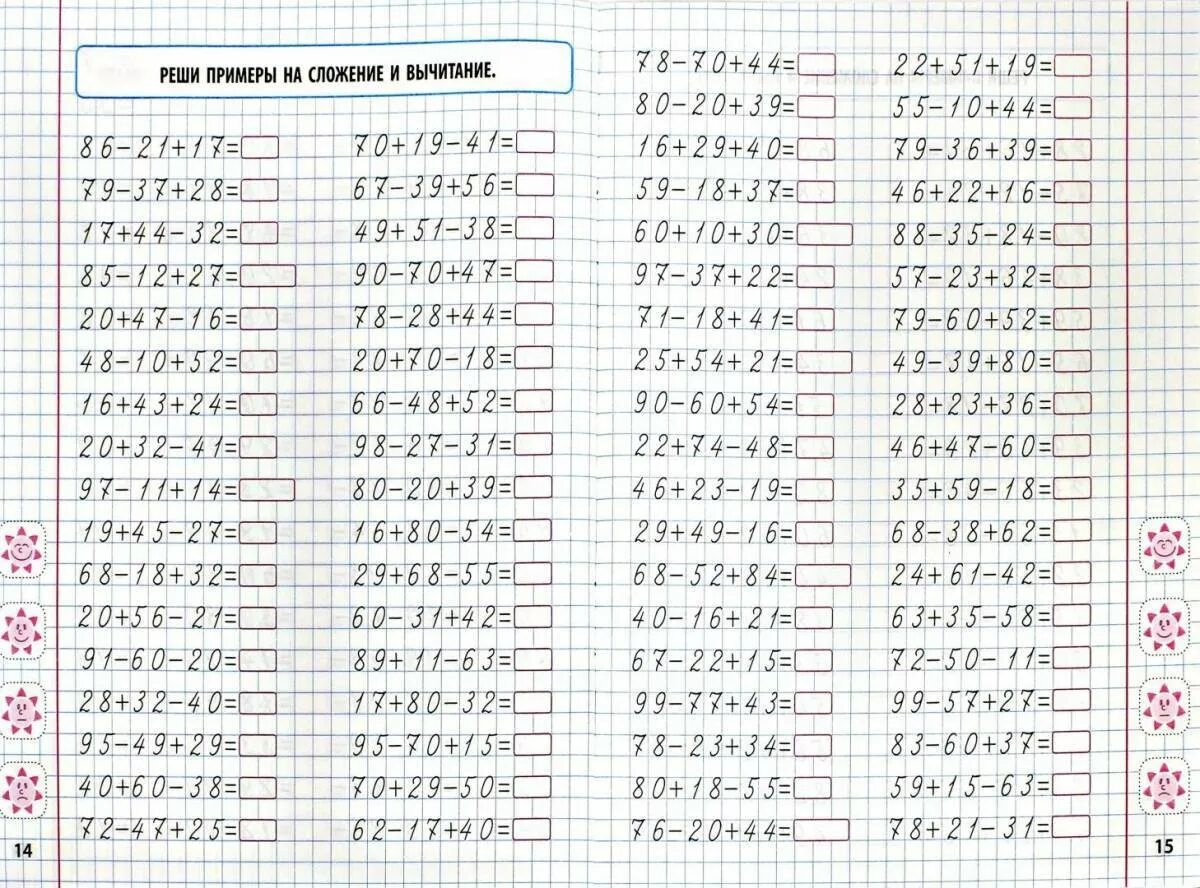 РЕШИ ПРИМЕРЫ НА СЛОЖЕНИЕ И ВЫЧИТАНИЕ.
86-21+17=
79-37+28=
17+44-32=
85-12+27=
20+47-16=
48-10+52=
16+43+24=
20+32-41=
97-11+14=
19+45-27=
68-18+32=
20+56-21=
91-60-20=
28+32-40=
95-49+29=
40+60-38=
72-47+25=
70+19-41=
67-39+56=
49+51-38=
90-70+47=
78-28+44=
20+70-18=
66-48+52=
98-27-31=
80-20+39=
16+80-54=
29+68-55=
60-31+42=
89+11-63=
17+80-32=
95-70+15=
70+29-50=
62-17+40=
14
78-70+44=
80-20+39=
16+29+40=
59-18+37=
60+10+30=
97-37+22=
71-18+41=
25+54+21=
90-60+54=
22+74-48=
46+23-19=
29+49-16=
68-52+84=
40-16+21=
67-22+15=
99-77+43=
78-23+34=
80+18-55=
76-20+44=
22+51+19=
55-10+44=
79-36+39=
46+22+16=
88-35-24=
57-23+32=
79-60+52=
49-39+80=
28+23+36=
46+47-60=
35+59-18=
68-38+62=
24+61-42=
63+35-58=
72-50-11=
99-57+27=
83-60+37=
59+15-63=
78+21-31=
15